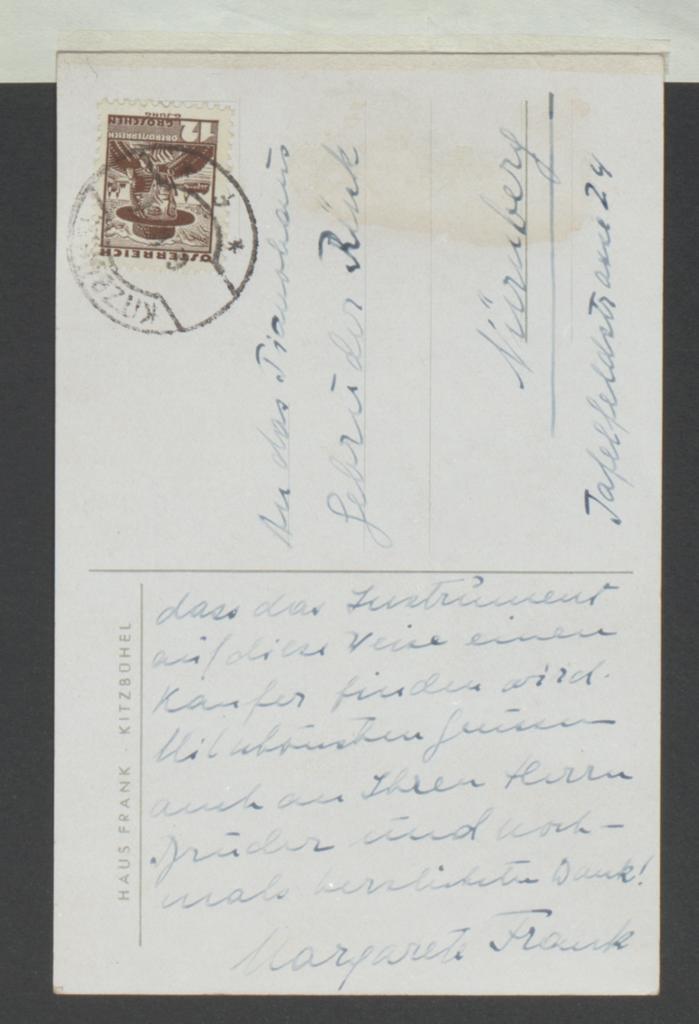 12
GROSCHEN
OBERÖSTERREICH
6. JUNG
ÖSTERREICH
KITZB
An das Pianohaus
Gebrüder Rück
Nürnberg
Tafelfeldstrasse 24
HAUS FRANK · KITZBÜHEL
dass das Instrument
auf diese Weise einen
Käufer finden wird.
Mit schönsten Grüssen
auch an Ihren Herrn
Bruder und noch-
mals herzlichsten Dank!
Margarete Frank